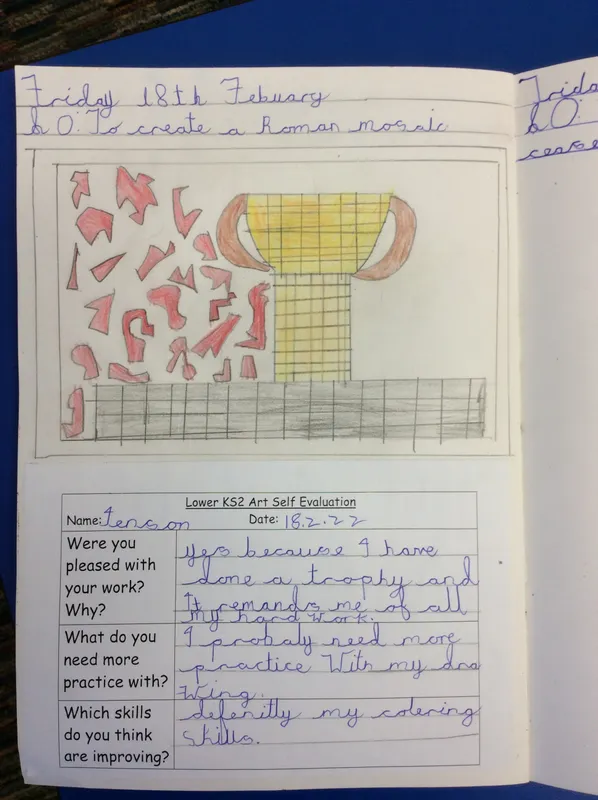 Friday 18th Febuary
LO: To create a Roman mosaic
Frida
LO:
cease
Lower KS2 Art Self Evaluation
Name: Jenson Date: 18.2.22
Were you pleased with your work? Why?
yes because I have
done a trophy and
It remands me of all
my hard work.
What do you need more practice with?
I probaly need more
practice With my dra
wing.
Which skills do you think are improving?
defenitly my colering
skills.